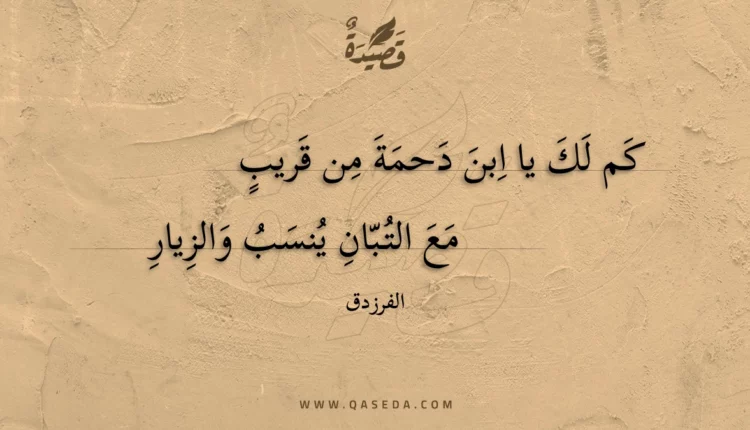 قَصِيدَةٌ
كَم لَكَ يا اِبنَ دَحمَةَ مِن قَريبٍ
مَعَ التُبّانِ يُنسَبُ وَالزِيارِ
الفرزدق
WWW.QASEDA.COM